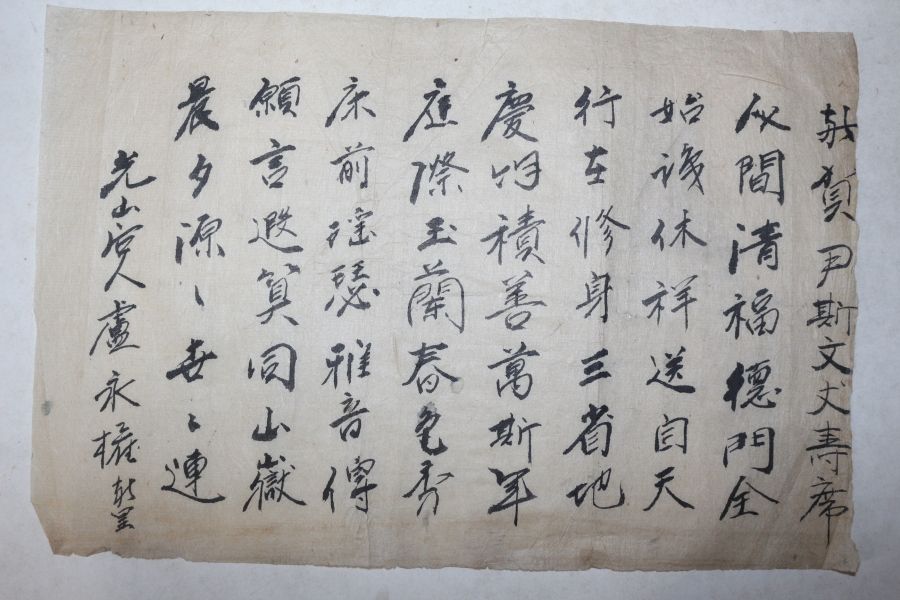 敬賀尹斯文丈壽席
人間清福德門全
始識休祥送自天
行在修身三省地
慶由積善萬斯年
庭際玉蘭春色秀
床前瑤瑟雅音傳
願言遐算同山嶽
晨夕源〻世〻連
光山后人盧永權敬呈